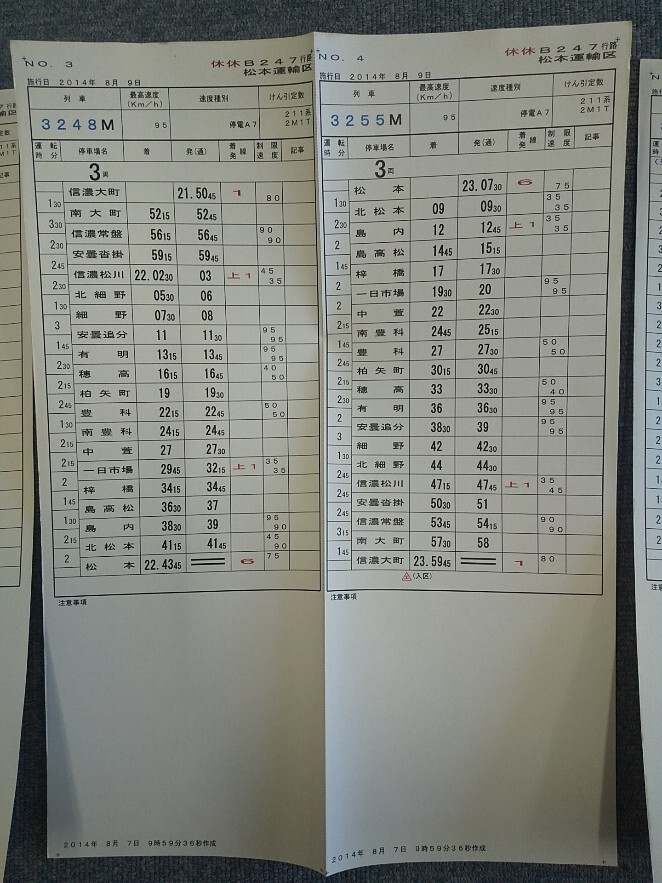 NO. 3
休休B247行路
松本運輸区
施行日 2014年 8月 9日
列車 最高速度(Km/h) 速度種別 けん引定数
3248M 95 停電A7 211系 2M1T
運転時分 停車場名 着 発(通) 着発線 制限速度 記事
3両
信濃大町 21.5045 1 80
130
南大町 5215 5245
330
信濃常盤 5615 5645 90 90
230
安曇沓掛 5915 5945
245
信濃松川 22.0230 03 上1 45 35
230
北細野 0530 06
130
細野 0730 08
3
安曇追分 11 1130 95 95
145
有明 1315 1345 95 95
230
穂高 1615 1645 40 50
215
柏矢町 19 1930
245
豊科 2215 2245 50 50
130
南豊科 2415 2445
215
中萱 27 2730
215
一日市場 2945 3215 上1 35 35
2
梓橋 3415 3445
145
島高松 3630 37
130
島内 3830 39 95 90
215
北松本 4115 4145 45 90
2
松本 22.4345 6 75
注意事項
2014年 8月 7日 9時59分36秒作成
NO. 4
休休B247行路
松本運輸区
施行日 2014年 8月 9日
列車 最高速度(Km/h) 速度種別 けん引定数
3255M 95 停電A7 211系 2M1T
運転時分 停車場名 着 発(通) 着発線 制限速度 記事
3両
松本 23.0730 6 75
130
北松本 09 0930 35 35
230
島内 12 1245 上1 35 35
2
島高松 1445 1515
145
梓橋 17 1730
2
一日市場 1930 20 95 95
2
中萱 22 2230
215
南豊科 2445 2515
145
豊科 27 2730 50 50
245
柏矢町 3015 3045
215
穂高 33 3330 50 40
230
有明 36 3630 95 95
2
安曇追分 3830 39 95 95
3
細野 42 4230
130
北細野 44 4430
245
信濃松川 4715 4745 上1 35 45
245
安曇沓掛 5030 51
245
信濃常盤 5345 5415 90 90
315
南大町 5730 58
145
信濃大町 23.5945 1 80
(入区)
注意事項
2014年 8月 7日 9時59分36秒作成